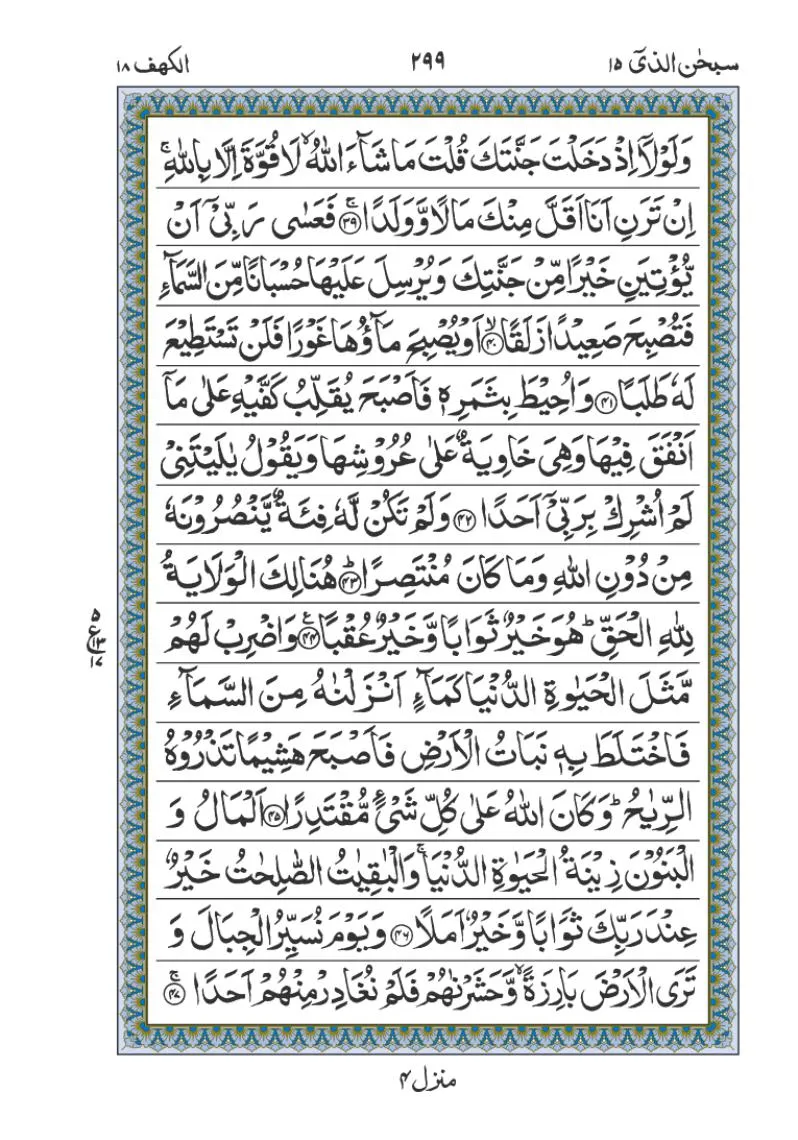 سبحٰن الذیٓ ۱۵
۲۹۹
الکهف ۱۸
وَلَوْلَاۤ اِذْ دَخَلْتَ جَنَّتَكَ قُلْتَ مَا شَآءَ اللّٰهُ ۙ لَا قُوَّةَ اِلَّا بِاللّٰهِ ۚ
اِنْ تَرَنِ اَنَا اَقَلَّ مِنْكَ مَالًا وَّوَلَدًا ۚ‏﴿۳۹﴾ فَعَسٰى رَبِّیْۤ اَنْ
یُّؤْتِیَنِ خَیْرًا مِّنْ جَنَّتِكَ وَیُرْسِلَ عَلَیْهَا حُسْبَانًا مِّنَ السَّمَآءِ
فَتُصْبِحَ صَعِیْدًا زَلَقًا ۙ‏﴿۴۰﴾ اَوْ یُصْبِحَ مَآؤُهَا غَوْرًا فَلَنْ تَسْتَطِیْعَ
لَهٗ طَلَبًا ﴿۴۱﴾ وَاُحِیْطَ بِثَمَرِهٖ فَاَصْبَحَ یُقَلِّبُ كَفَّیْهِ عَلٰى مَاۤ
اَنْفَقَ فِیْهَا وَهِیَ خَاوِیَةٌ عَلٰى عُرُوْشِهَا وَیَقُوْلُ یٰلَیْتَنِیْ
لَمْ اُشْرِكْ بِرَبِّیْۤ اَحَدًا ﴿۴۲﴾ وَلَمْ تَكُنْ لَّهٗ فِئَةٌ یَّنْصُرُوْنَهٗ
مِنْ دُوْنِ اللّٰهِ وَمَا كَانَ مُنْتَصِرًا ؕ‏﴿۴۳﴾ هُنَالِكَ الْوَلَایَةُ
لِلّٰهِ الْحَقِّ ؕ هُوَ خَیْرٌ ثَوَابًا وَّخَیْرٌ عُقْبًا ﴿۴۴﴾ۧ وَاضْرِبْ لَهُمْ
مَّثَلَ الْحَیٰوةِ الدُّنْیَا كَمَآءٍ اَنْزَلْنٰهُ مِنَ السَّمَآءِ
فَاخْتَلَطَ بِهٖ نَبَاتُ الْاَرْضِ فَاَصْبَحَ هَشِیْمًا تَذْرُوْهُ
الرِّیٰحُ ؕ وَكَانَ اللّٰهُ عَلٰى كُلِّ شَیْءٍ مُّقْتَدِرًا ﴿۴۵﴾ اَلْمَالُ وَ
الْبَنُوْنَ زِیْنَةُ الْحَیٰوةِ الدُّنْیَا ۚ وَالْبٰقِیٰتُ الصّٰلِحٰتُ خَیْرٌ
عِنْدَ رَبِّكَ ثَوَابًا وَّخَیْرٌ اَمَلًا ﴿۴۶﴾ وَیَوْمَ نُسَیِّرُ الْجِبَالَ وَ
تَرَى الْاَرْضَ بَارِزَةً ۙ وَّحَشَرْنٰهُمْ فَلَمْ نُغَادِرْ مِنْهُمْ اَحَدًا ۚ‏﴿۴۷﴾
۵
ع
۱۳
۱۷
منزل ۴